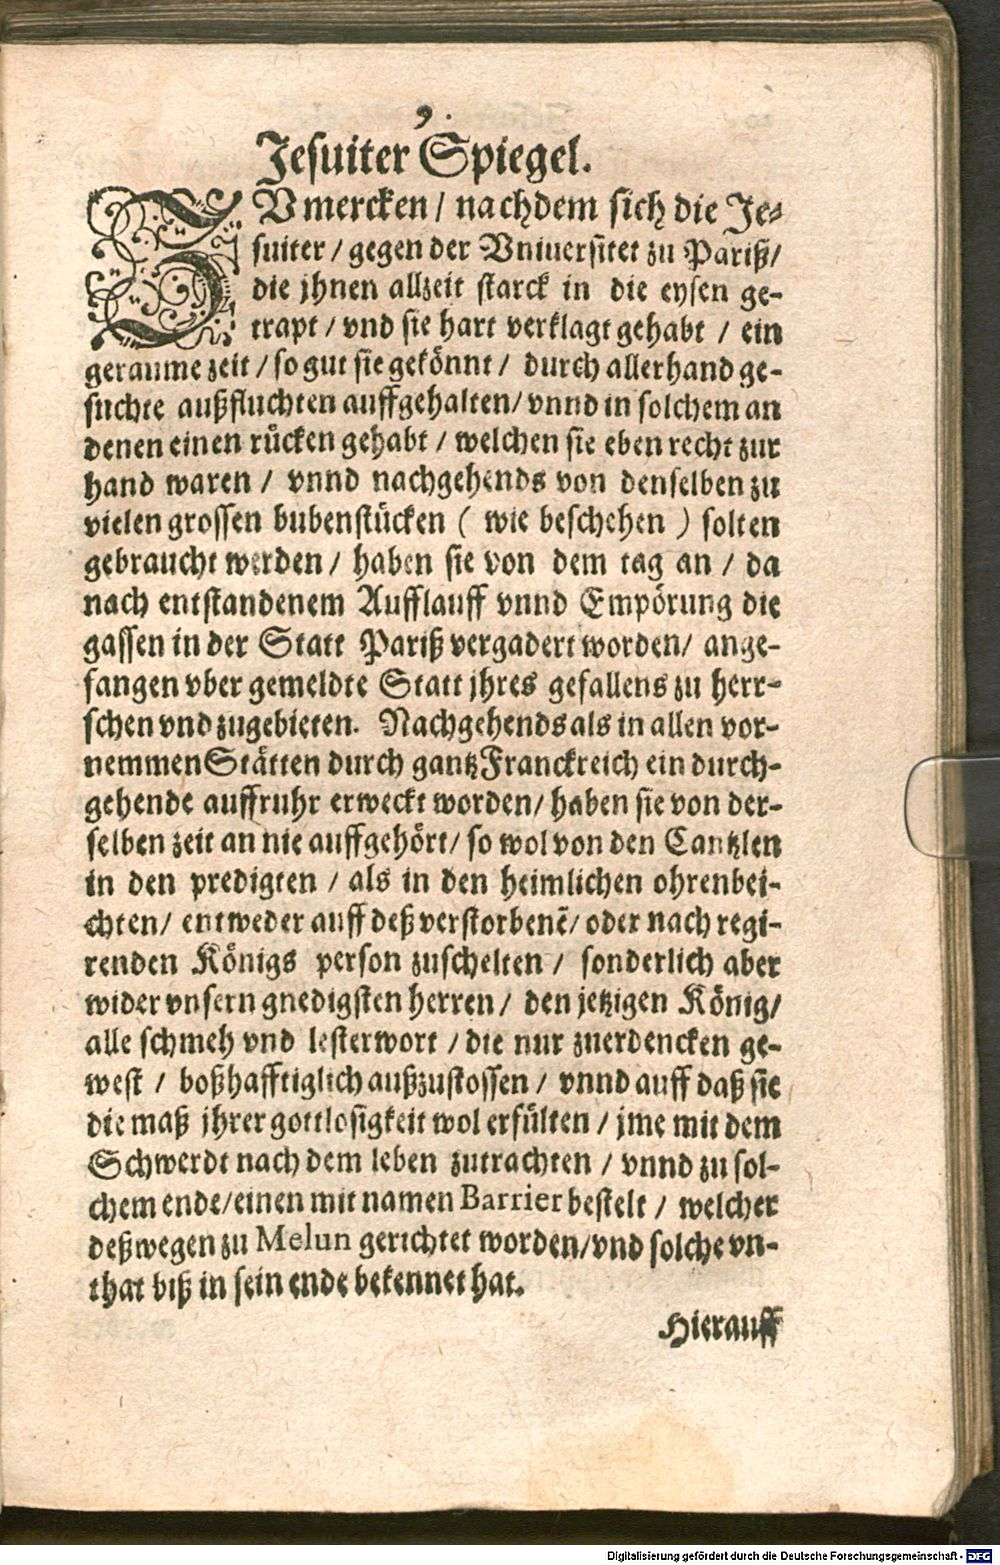 9.
Jesuiter Spiegel.
ZVmercken / nachdem sich die Je-
suiter / gegen der Vniuersitet zu Pariß /
die jhnen allzeit starck in die eysen ge-
trapt / vnd sie hart verklagt gehabt / ein
geraume zeit / so gut sie gekönnt / durch allerhand ge-
suchte außfluchten auffgehalten / vnnd in solchem an
denen einen rücken gehabt / welchen sie eben recht zur
hand waren / vnnd nachgehends von denselben zu
vielen grossen bubenstücken ( wie beschehen ) solten
gebraucht werden / haben sie von dem tag an / da
nach entstandenem Aufflauff vnnd Empörung die
gassen in der Statt Pariß vergadert worden / ange-
fangen vber gemeldte Statt jhres gefallens zu herr-
schen vnd zugebieten. Nachgehends als in allen vor-
nemmen Stätten durch gantz Franckreich ein durch-
gehende auffruhr erweckt worden / haben sie von der-
selben zeit an nie auffgehört / so wol von den Cantzlen
in den predigten / als in den heimlichen ohrenbei-
chten / entweder auff deß verstorbenẽ / oder nach regi-
renden Königs person zuschelten / sonderlich aber
wider vnsern gnedigsten herren / den jetzigen König /
alle schmeh vnd lesterwort / die nur zuerdencken ge-
west / boßhafftiglich außzustossen / vnnd auff daß sie
die maß jhrer gottlosigkeit wol erfülten / jme mit dem
Schwerdt nach dem leben zutrachten / vnnd zu sol-
chem ende / einen mit namen Barrier bestelt / welcher
deßwegen zu Melun gerichtet worden / vnd solche vn-
that biß in sein ende bekennet hat.
Hierauff
Digitalisierung gefördert durch die Deutsche Forschungsgemeinschaft - DFG